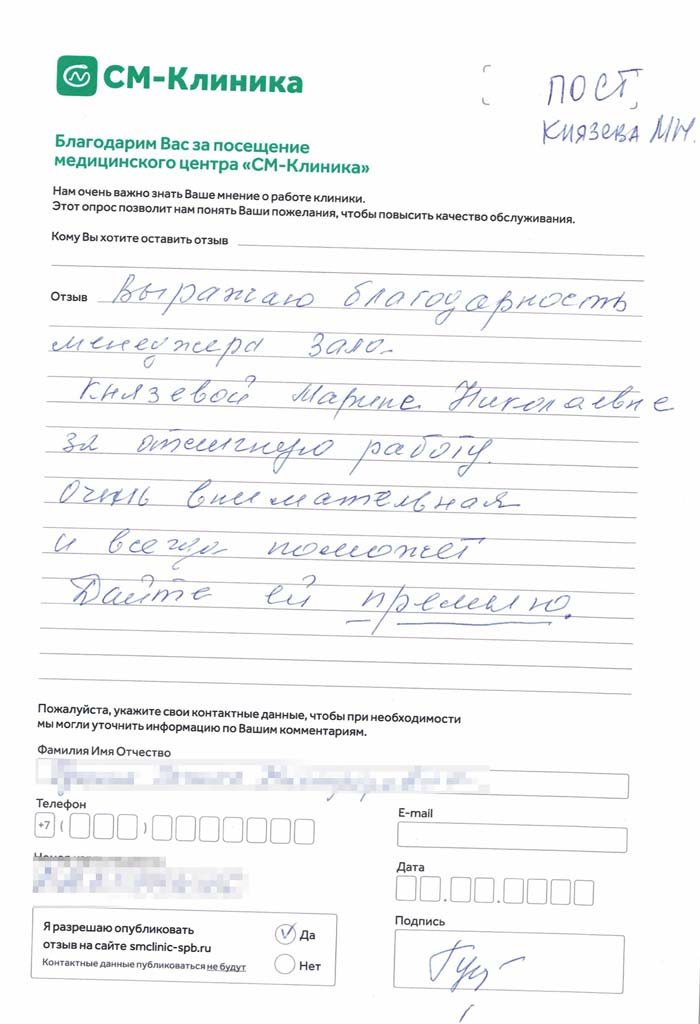 СМ-Клиника
ПОСТ
Князева МН.
Благодарим Вас за посещение
медицинского центра «СМ-Клиника»
Нам очень важно знать Ваше мнение о работе клиники.
Этот опрос позволит нам понять Ваши пожелания, чтобы повысить качество обслуживания.
Кому Вы хотите оставить отзыв
Отзыв Выражаю благодарность
менеджера зала
Князевой Марине Николаевне
за отличную работу.
Очень внимательная
и всегда поможет
Дайте ей премию.
Пожалуйста, укажите свои контактные данные, чтобы при необходимости
мы могли уточнить информацию по Вашим комментариям.
Фамилия Имя Отчество
Телефон
+7 ( )
E-mail
Дата
Подпись
Я разрешаю опубликовать
отзыв на сайте smclinic-spb.ru
Контактные данные публиковаться не будут
Да
Нет